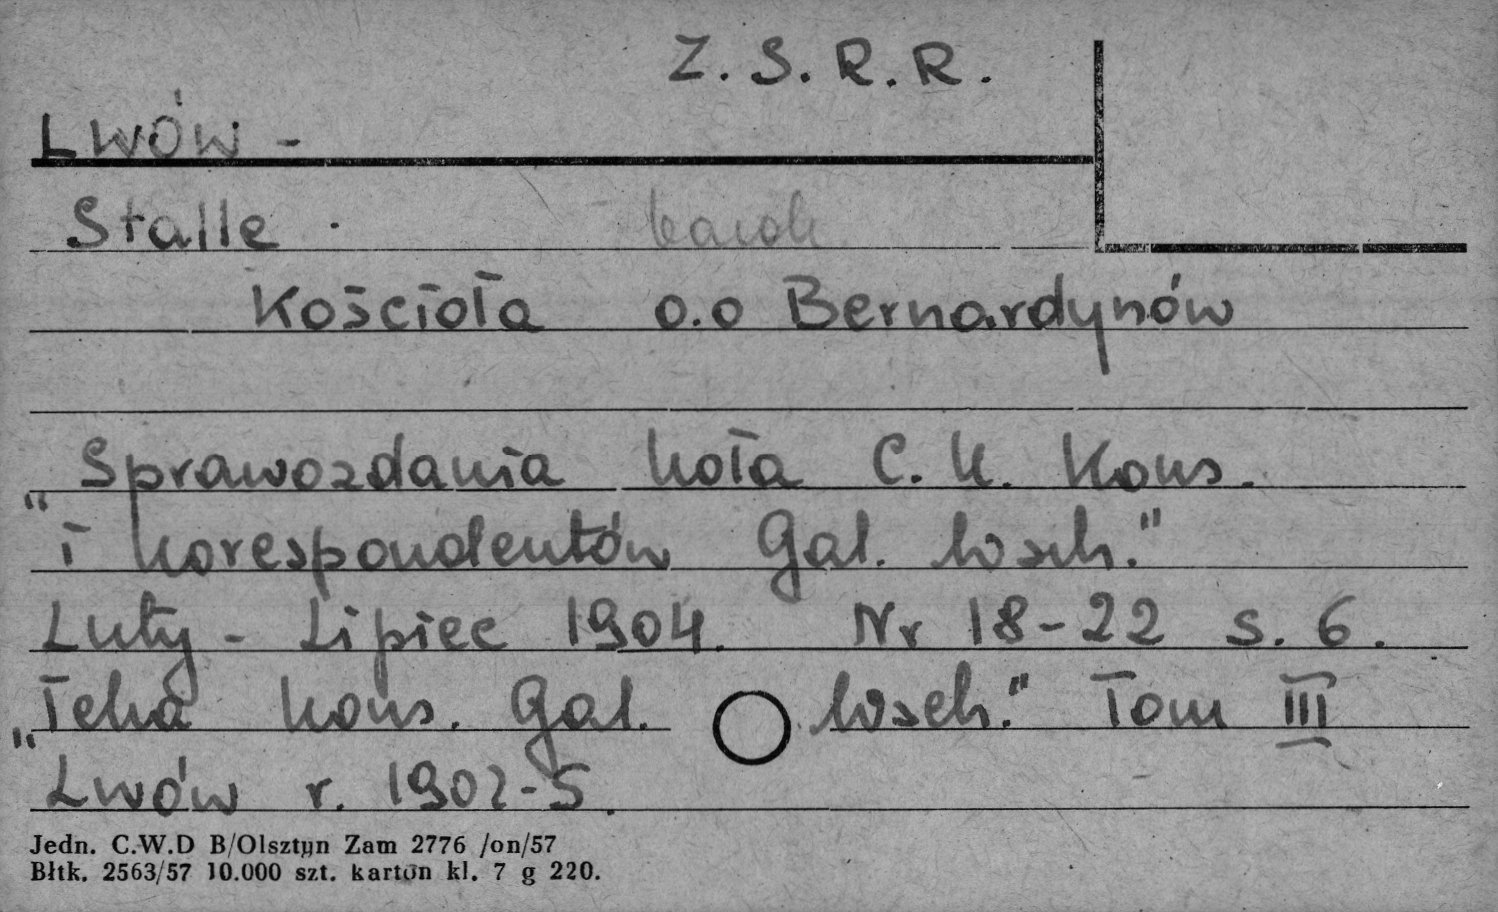 Z.S.R.R.
Lwów -
Stalle · barok
Kościoła o.o Bernardynów
Sprawozdania koła C.K. Kons.
"i korespondentów Gal. Wsch."
Luty - Lipiec 1904. Nr 18-22 s. 6.
"Teka kons. Gal. Wsch." Tom III
Lwów r. 1902-5.
Jedn. C.W.D B/Olsztyn Zam 2776 /on/57
Błtk. 2563/57 10.000 szt. karton kl. 7 g 220.